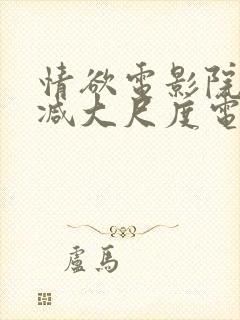 情欲電影院
减大尺度電
盧馬